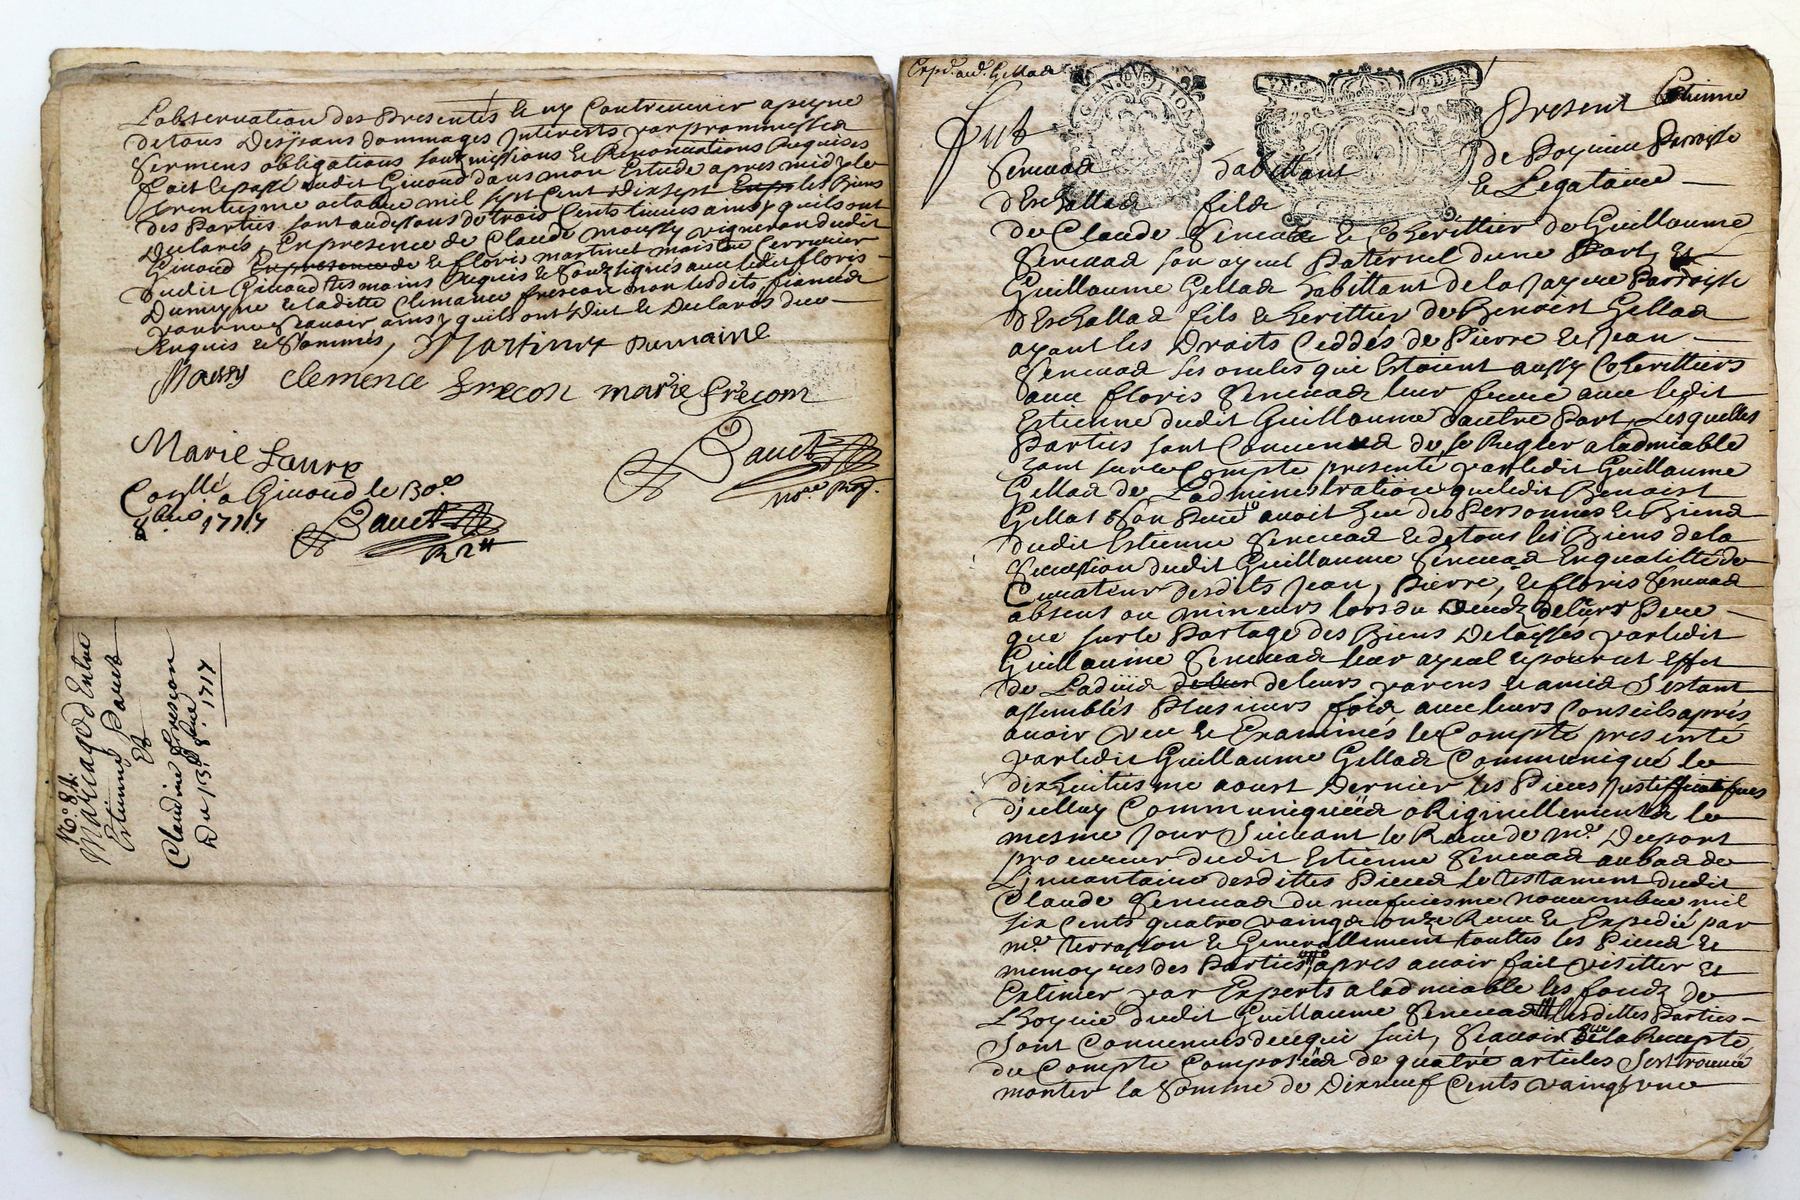 L'observation des Presentes et ny Contrevenir a peyne
de tous Despans dommages Interests par promesses
sermens obligations soubmissions & Renonciations Requises
fait & passé audit Givord dans mon Estude apres midy le
trentiesme octobre mil sept Cent dixsept les Biens
des Parties sont audessous de trois Cents livres ainsy quils ont
Declaré, En presence de Claude moussy vigneron dudit
Givord En presence de & floris martinet maistre serrurier
dudit Givord tesmoins Requis & soubsignés avec ledit floris
Dumayne & laditte Clemance frescon non lesdits fiancés
pour ne sçavoir ainsy quils ont dit & Declaré de ce
Enquis & sommés,
Martinet Dumaine
Moussy Clemence Frecon marie frecon
Marie Faure
Bauet
no.re Roy.
Con.llé a Givord le 30.e
8.bre 1717
Bauet
R 2 tt
N.° 84.
Mariage d'Entre
Estienne Paret
Et
Claudine frescon
Du 13.e 8.bre 1717
Exp.é aud. Gellas
GEN. D
Fut Present Estienne
servuas habittant de Parroisse
d'Eschallas fils & Legataire
de Claude servuas & Coherittier de Guillaume
servuas son ayeul Paternel d'une Part, &
Guillaume Gellas habittant de la Parroisse
d'Eschallas fils & herittier de Benoist Gellas
ayant les Droits Ceddés de Pierre & Jean
servuas ses oncles que Estoient aussy Coherittiers
avec floris servuas leur frere avec ledit
Estienne dudit Guillaume d'autre Part, Lesquelles
Parties sont Convenues de se Regler a l'admiable
tant sur le Compte presenté par ledit Guillaume
Gellas de L'administration que ledit Benoist
Gellas son Pere avoit heu des Personnes & Biens
dudit Estienne servuas & de tous les Biens de la
succession dudit Guillaume servuas En qualitté de
Curateur desdits Jean, Pierre, & floris servuas
absens ou mineurs lors du Decedz de leurs Pere
que sur le Partage des Biens Delaissés par ledit
Guillaume servuas leur ayeul & pour cet effet
de L'advis de leurs parens & amis s'estant
assemblés Plusieurs fois avec leurs Conseils aprés
avoir veu & Examinés le Compte presenté
par ledit Guillaume Gellas Communiqué le
dixhuitiesme aoust Dernier les Pieces justifficatifves
d'icelluy Communiqueés originellement le
mesme jour suivant le Receu de m.e Duport
procureur dudit Estienne servuas au bas de
L'inventaire desdittes Pieces le testament dudit
Claude servuas du novembre mil
six Cents quatre vaingts onze Receu & Expedié par
m.e terrasson & Generallement touttes les Pieces &
memoyres des Parties apres avoir fait visitter &
Estimer par Experts a l'admiable les fondz de
L'hoyrie dudit Guillaume servuas lesdittes Parties
sont Convenues de ce qui suit, sçavoir que la Recepte
du Compte Composeé de quatre articles s'est trouveé
monter la somme de Dixneuf Cents vaingt une